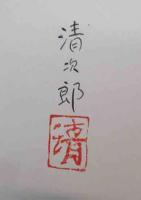 清次郎
清